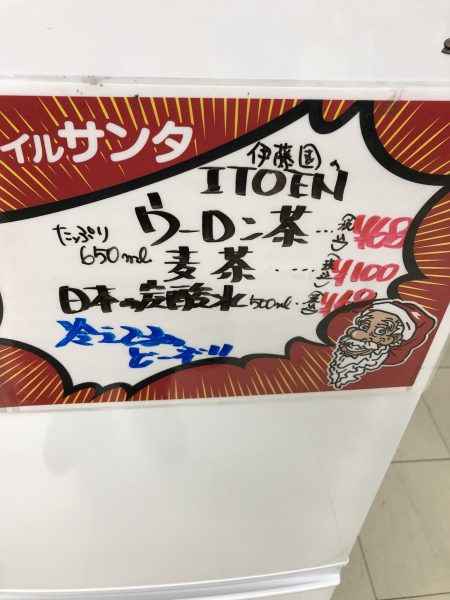 イルサンタ
伊藤園
ITOEN
たっぷり
650ml
ウーロン茶 … (税込)
麦茶 … (税込) ¥100
日本の炭酸水 500ml. (税込)
冷えてます
どーぞ!!